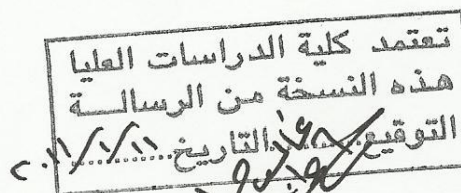 تعتمد كلية الدراسات العليا
هذه النسخة من الرسالــة
التوقيع.......التاريخ.......٢٠١١/١/١١